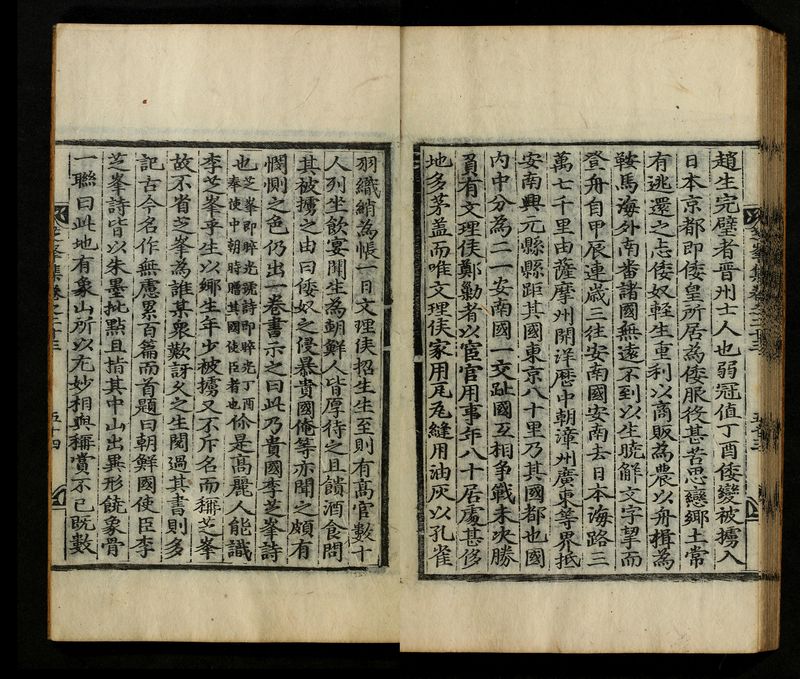 趙生完璧者晋州士人也弱冠值丁酉倭變被擄入
日本京都即倭皇所居為倭服役甚苦思戀鄉土常
有逃還之志倭奴輕生重利以商販為農以舟楫為
鞍馬海外南番諸國無遠不到以生曉解文字挈而
登舟自甲辰連歲三往安南國安南去日本海路三
萬七千里由薩摩州開洋歷中朝漳州廣東等界抵
安南興元縣縣距其國東京八十里乃其國都也國
内中分為二一安南國一交趾國互相争戰未决勝
負有文理侯鄭勦者以宦官用事年八十居處甚侈
地多茅盖而唯文理侯家用瓦瓦縫用油灰以孔雀
芝峯集卷之二十三
羽織綃為帳一日文理侯招生生至則有高官數十
人列坐飲宴聞生為朝鮮人皆厚待之且饋酒食問
其被擄之由曰倭奴之侵暴貴國俺等亦聞之頗有
憫惻之色仍出一卷書示之曰此乃貴國李芝峯詩
也芝峯即睟光號詩即睟光丁酉奉使中朝時贈其國使臣者也你是高麗人能識
李芝峯乎生以鄉生年少被擄又不斥名而稱芝峯
故不省芝峯為誰某衆歎訝久之生閱過其書則多
記古今名作無慮累百篇而首題曰朝鮮國使臣李
芝峯詩皆以朱墨批點且指其中山出異形饒象骨
一聯曰此地有象山所以尤妙相與稱賞不已既數
芝峯集卷之二十三
五十四